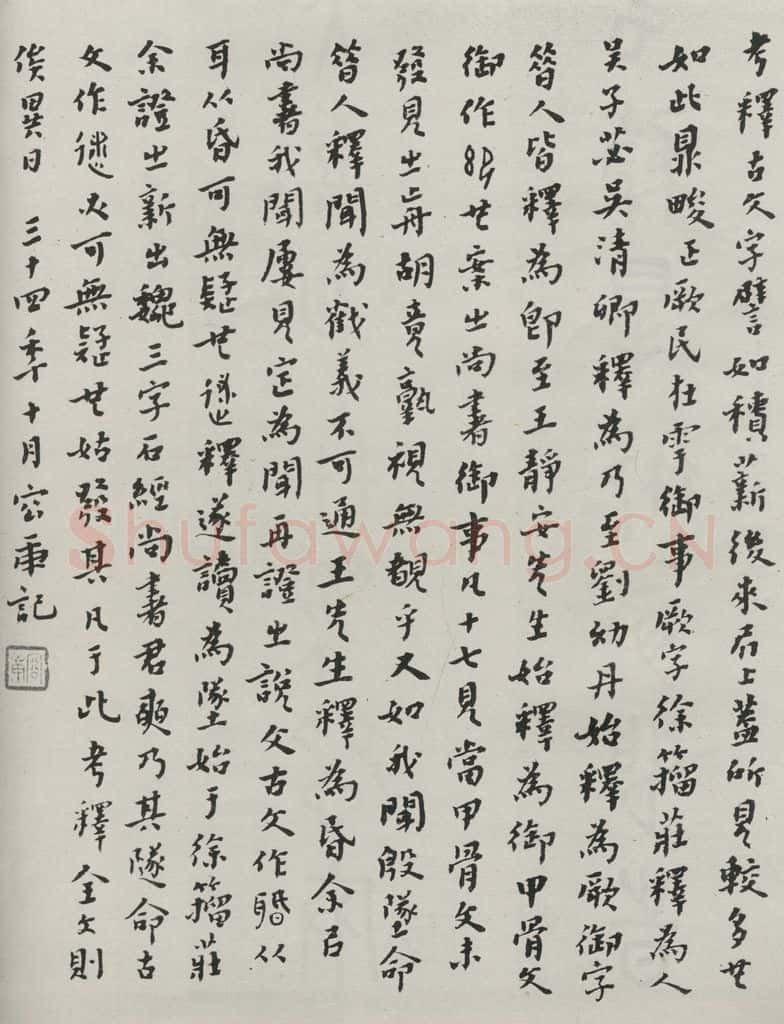 考釋古文字譬如積薪後來居上蓋所見較多也
如此鼎畯正厥民在雩御事厥字徐籀莊釋為人
吴子苾吴清卿釋為乃至劉幼丹始釋為厥御字
昝人皆釋為卽至王靜安先生始釋為御甲骨文
御作 也案之尚書御事凡十七見當甲骨文未
發見之前胡竟孰視無覩乎又如我聞殷墜命
昝人釋聞為觀義不可通王先生釋為昏余㠯
尚書我聞屢見定為聞再證之說文古文作䎽从
耳从昏可無疑也 釋遂讀為墜始于徐籀莊
余證之新出魏三字石經尚書君奭乃其隧命古
文作 亦可無疑也姑發其凡于此考釋全文則
俟異日 三十四年十月容庚記
容庚
Shufawang.CN